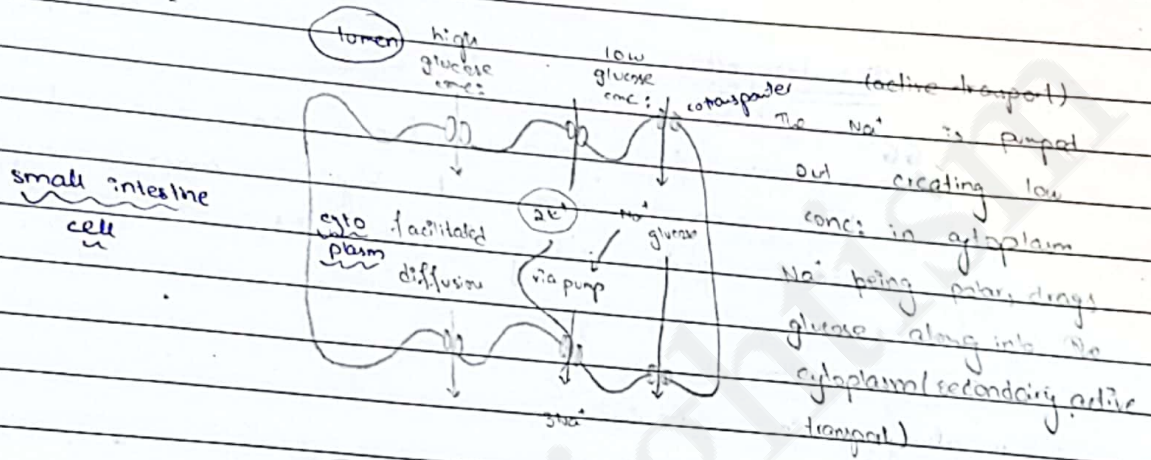 lumen
high
glucose
conc:
low
glucose
conc:
cotransporter
(active transport)
The Na⁺ is pumped
out creating low
conc: in cytoplasm
Na⁺ being polar, drags
glucose along into the
cytoplasm (secondary active
transport)
small intestine
cell
cyto
plasm
facilitated
diffusion
2K⁺
via pump
Na⁺
glucose
3Na⁺